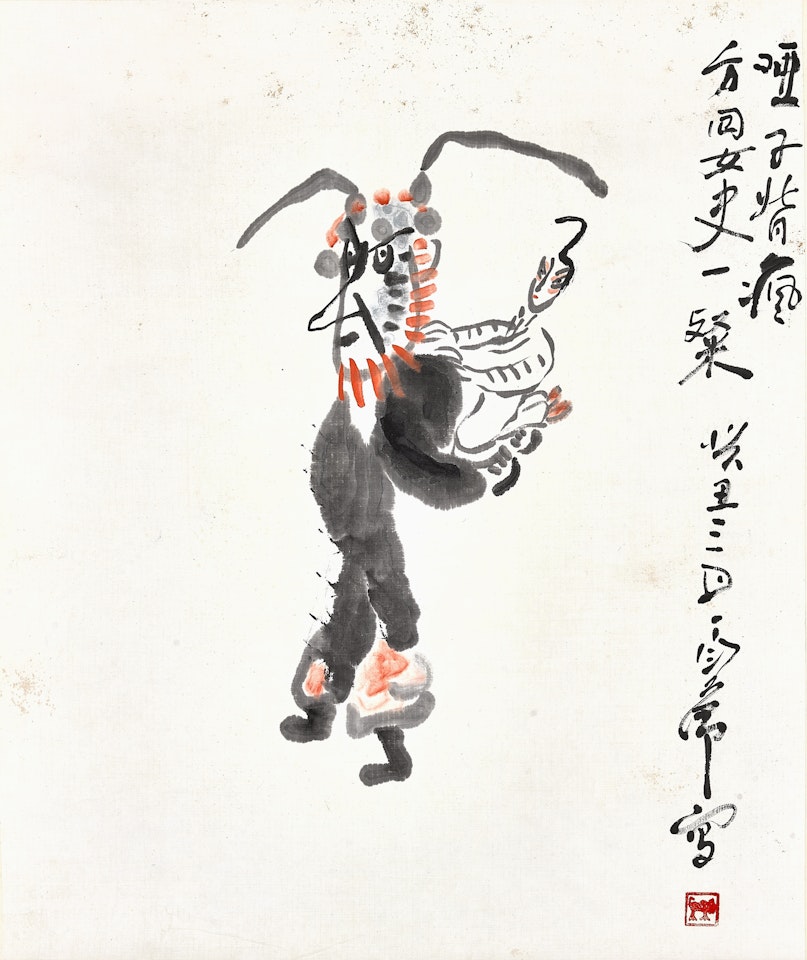 啞子背瘋
方回女史一粲 癸丑三月 寫